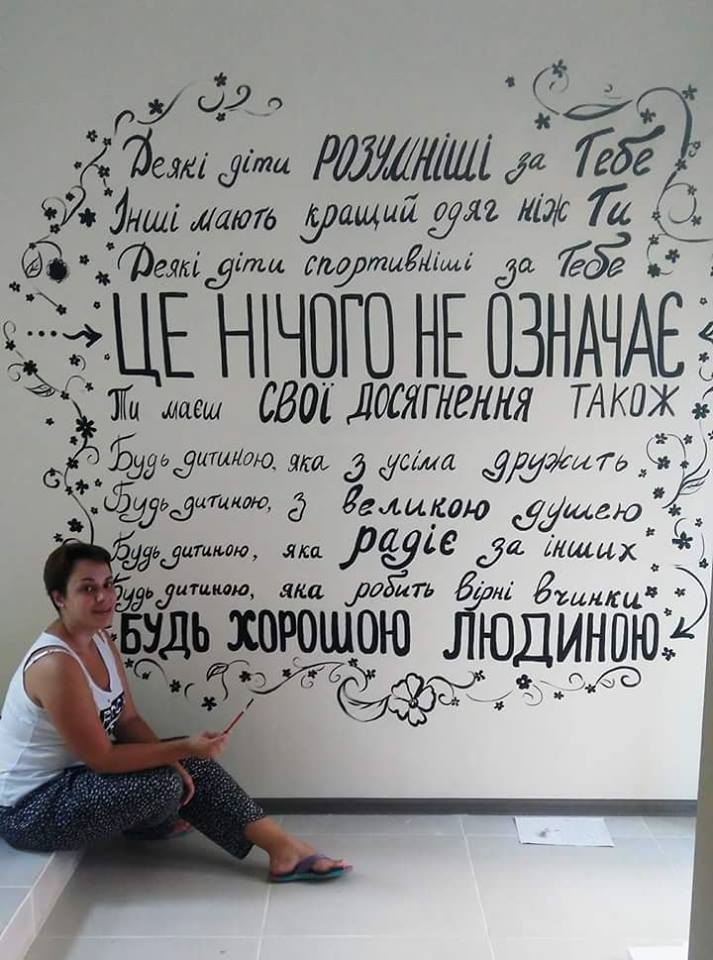 Деякі діти РОЗУМНІШІ за Тебе
Інші мають кращий одяг ніж Ти
Деякі діти спортивніші за Тебе
ЦЕ НІЧОГО НЕ ОЗНАЧАЄ
Ти маєш СВОЇ ДОСЯГНЕННЯ ТАКОЖ
Будь дитиною, яка з усіма дружить
Будь дитиною, з великою душею
Будь дитиною, яка радіє за інших
Будь дитиною, яка робить вірні вчинки
БУДЬ ХОРОШОЮ ЛЮДИНОЮ